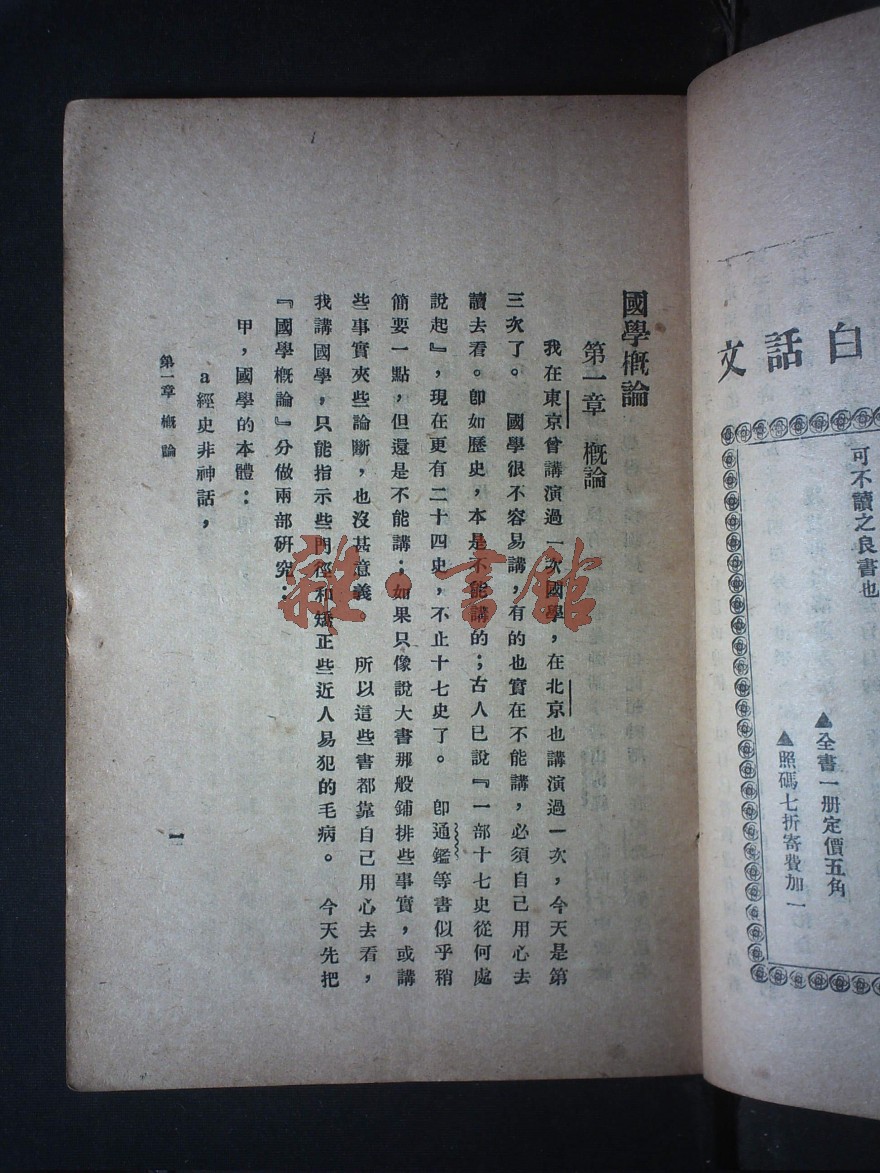 白話文
可不讀之良書也
▲全書一册定價五角
▲照碼七折寄費加一
國學概論
第一章　概論
我在東京曾講演過一次國學，在北京也講演過一次，今天是第
三次了。　國學很不容易講，有的也實在不能講，必須自己用心去
讀去看。卽如歷史，本是不能講的；古人已說『一部十七史從何處
說起』，現在更有二十四史，不止十七史了。　卽通鑑等書似乎稍
簡要一點，但還是不能講；如果只像說大書那般鋪排些事實，或講
些事實夾些論斷，也沒甚意義　所以這些書都靠自己用心去看，
我講國學，只能指示些門徑和矯正些近人易犯的毛病。　今天先把
『國學概論』分做兩部研究：
甲，國學的本體：
a經史非神話，
第一章　概論
一
雜·書館